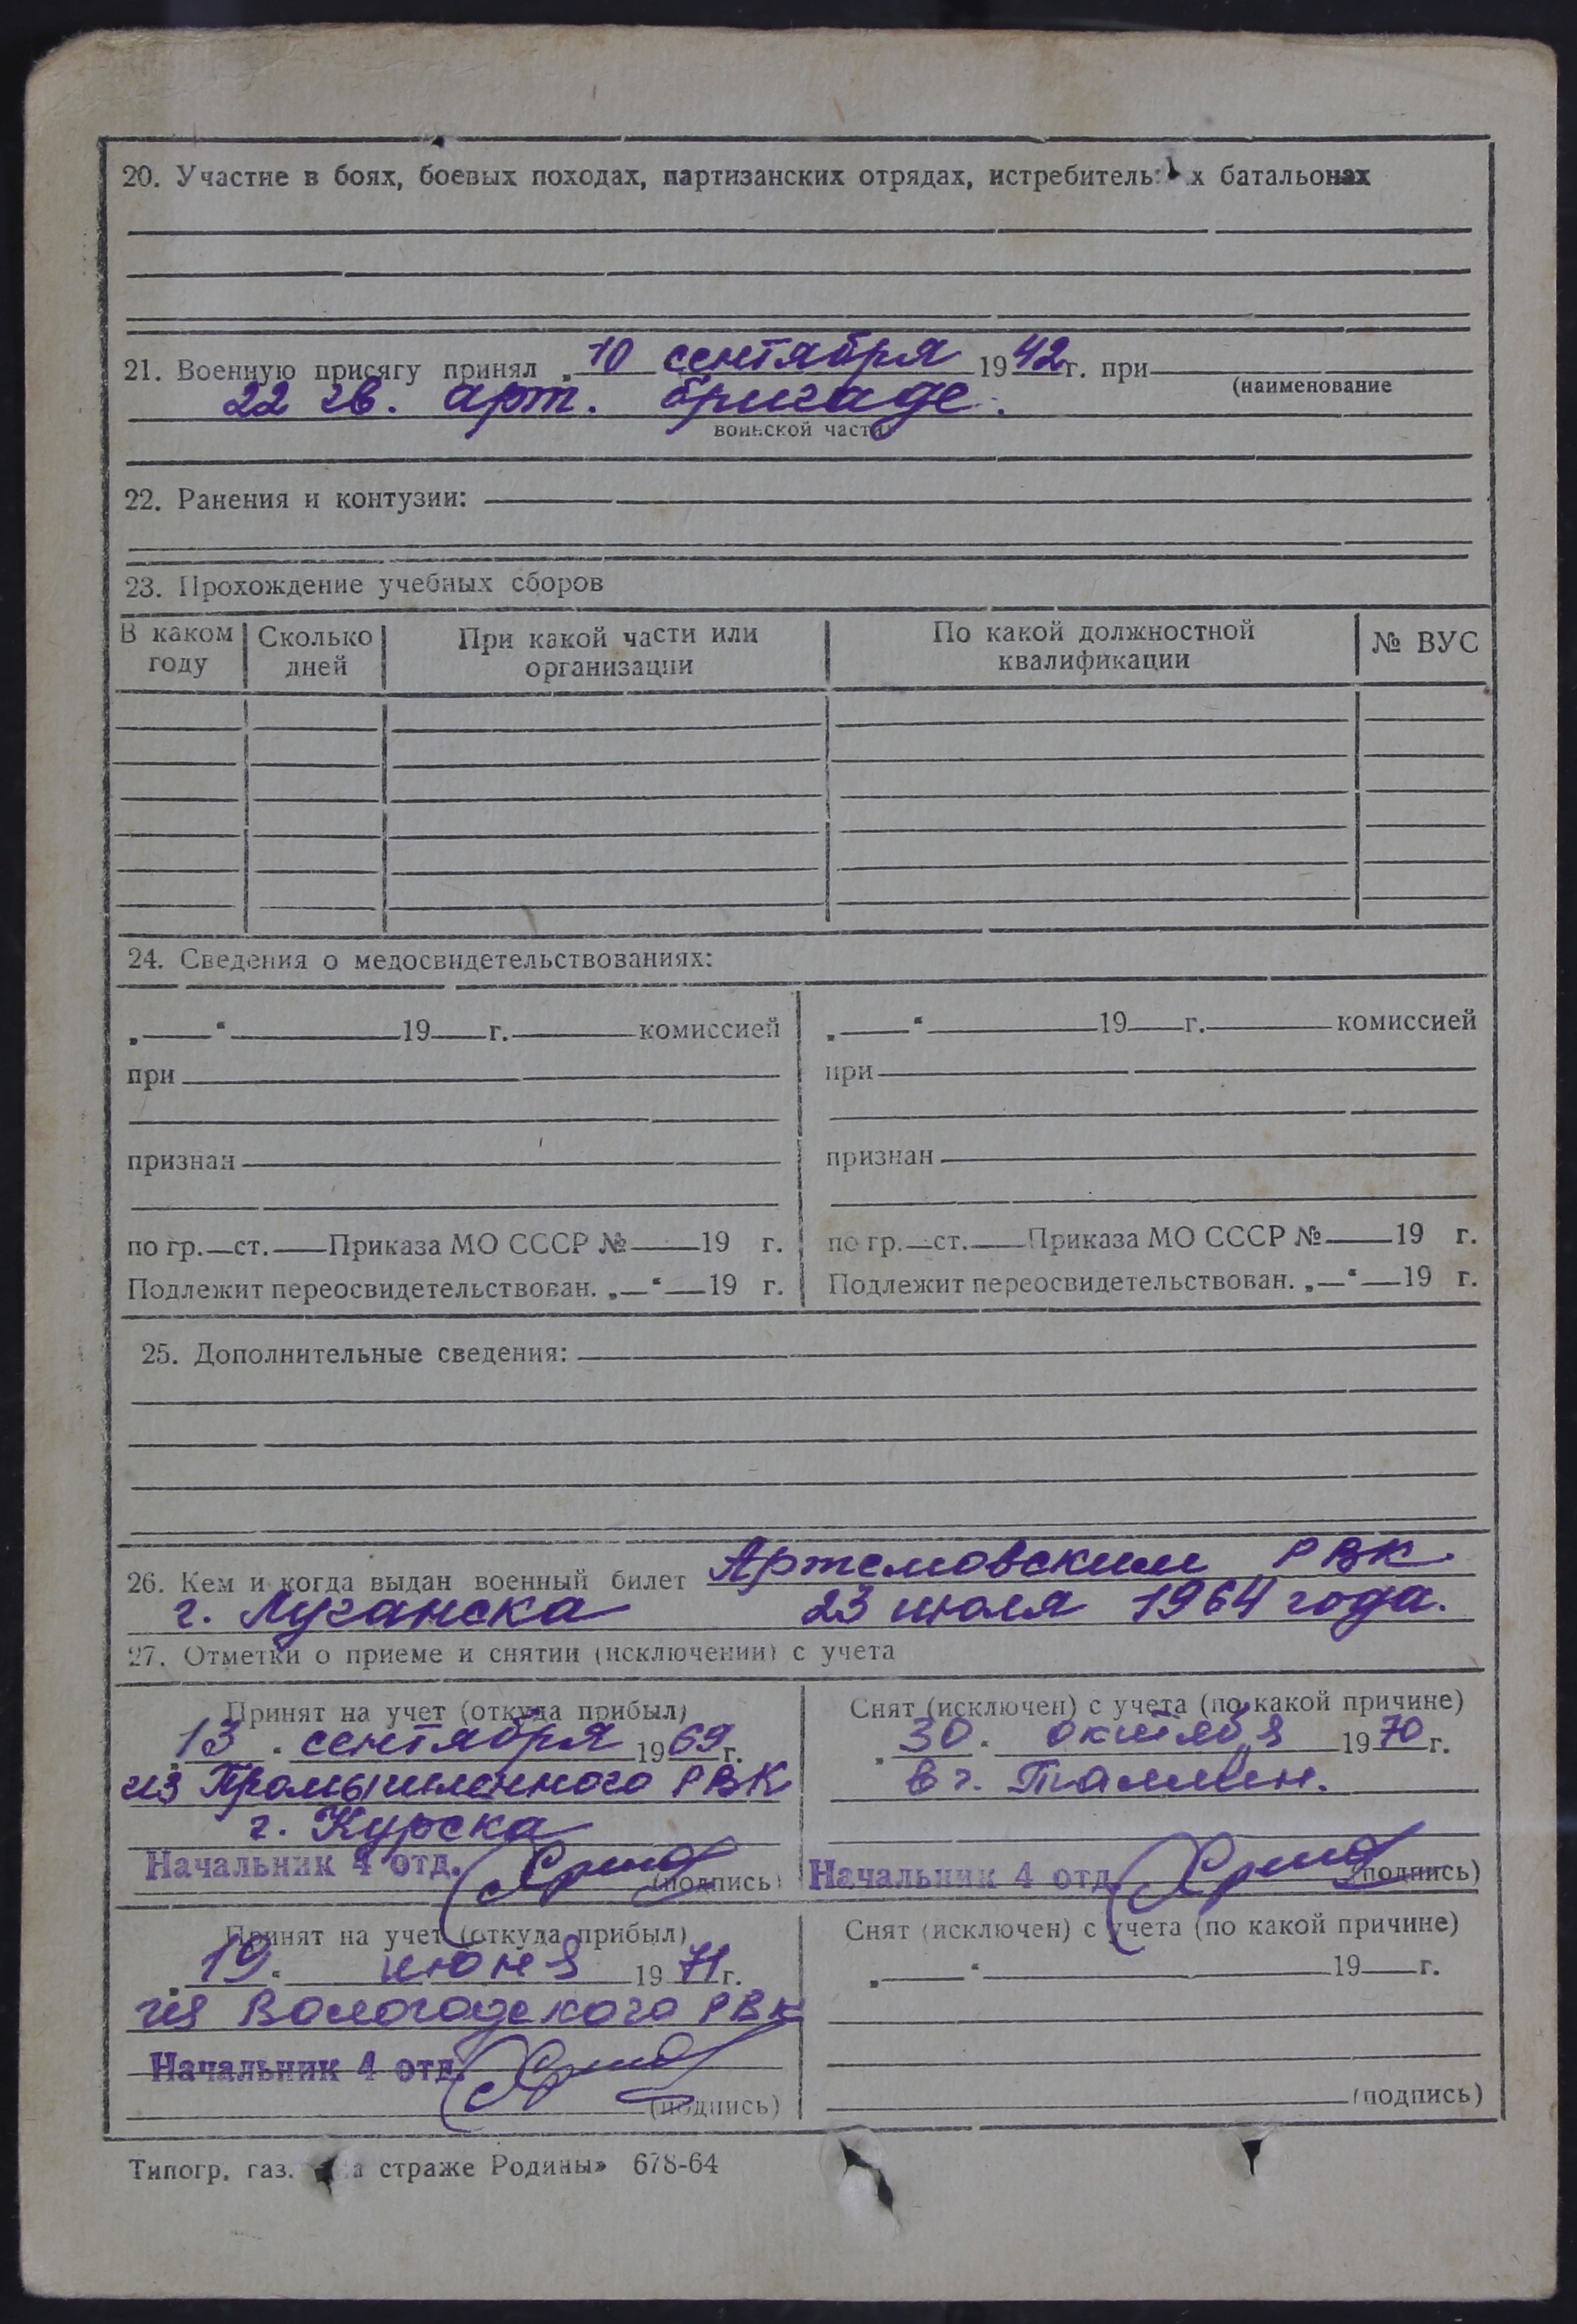 20. Участие в боях, боевых походах, партизанских отрядах, истребитель х батальонах
21. Военную присягу принял „ 10 сентября 1942 г. при
(наименование
22 гв. арт. бригаде.
воинской части)
22. Ранения и контузии:
23. Прохождение учебных сборов
В каком году Сколько дней При какой части или организации По какой должностной квалификации № ВУС
24. Сведения о медосвидетельствованиях:
„ “ 19 г. комиссией
при
признан
по гр. ст. Приказа МО СССР № 19 г.
Подлежит переосвидетельствован. „ “ 19 г.
„ “ 19 г. комиссией
при
признан
по гр. ст. Приказа МО СССР № 19 г.
Подлежит переосвидетельствован. „ “ 19 г.
25. Дополнительные сведения:
26. Кем и когда выдан военный билет Артемовским РВК
г. Луганска 23 июля 1964 года.
27. Отметки о приеме и снятии (исключении) с учета
Принят на учет (откуда прибыл)
„ 13 “ сентября 1969 г.
из Промышленного РВК
г. Курска
Начальник 4 отд.
(подпись)
Снят (исключен) с учета (по какой причине)
„ 30 “ октября 1970 г.
в г. Таллин.
Начальник 4 отд.
(подпись)
Принят на учет (откуда прибыл)
„ 19 “ июня 1971 г.
из Вологодского РВК
Начальник 4 отд.
(подпись)
Снят (исключен) с учета (по какой причине)
„ “ 19 г.
(подпись)
Типогр. газ. а страже Родины» 678-64